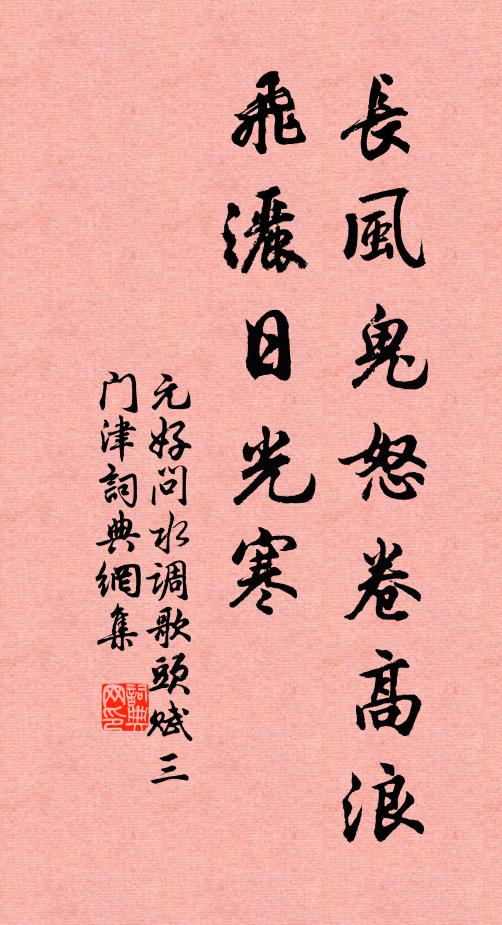 長風鬼怒卷高浪
飛灑日光寒
元好问水调歌頭赋三
门津詞典網集
詞典
网印